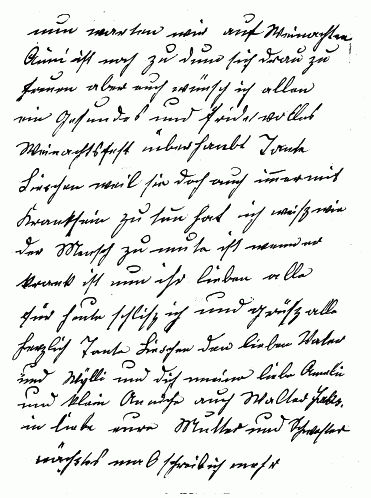 nun warten wir auf Weinachten
Anni ist noch zu dum sich drau zu
freuen aber euch wünsch ich allen
ein Gesundes und fridevolles
Weinachtsfest überhaubt Tante
Lieschen weil sie doch auch immer mit
Kranksein zu tun hat ich weisz wie
der Mensch zu mute ist wenn er
krank ist nun ihr lieben alle
für heute schlisz ich und grüsz alle
herzlich Tante Lieschen den lieben Vater
und Willi und dich meine liebe Amalie
und klein auch Walter
in liebe eure Mutter und Schwester
nächstes mal schreib ich mehr